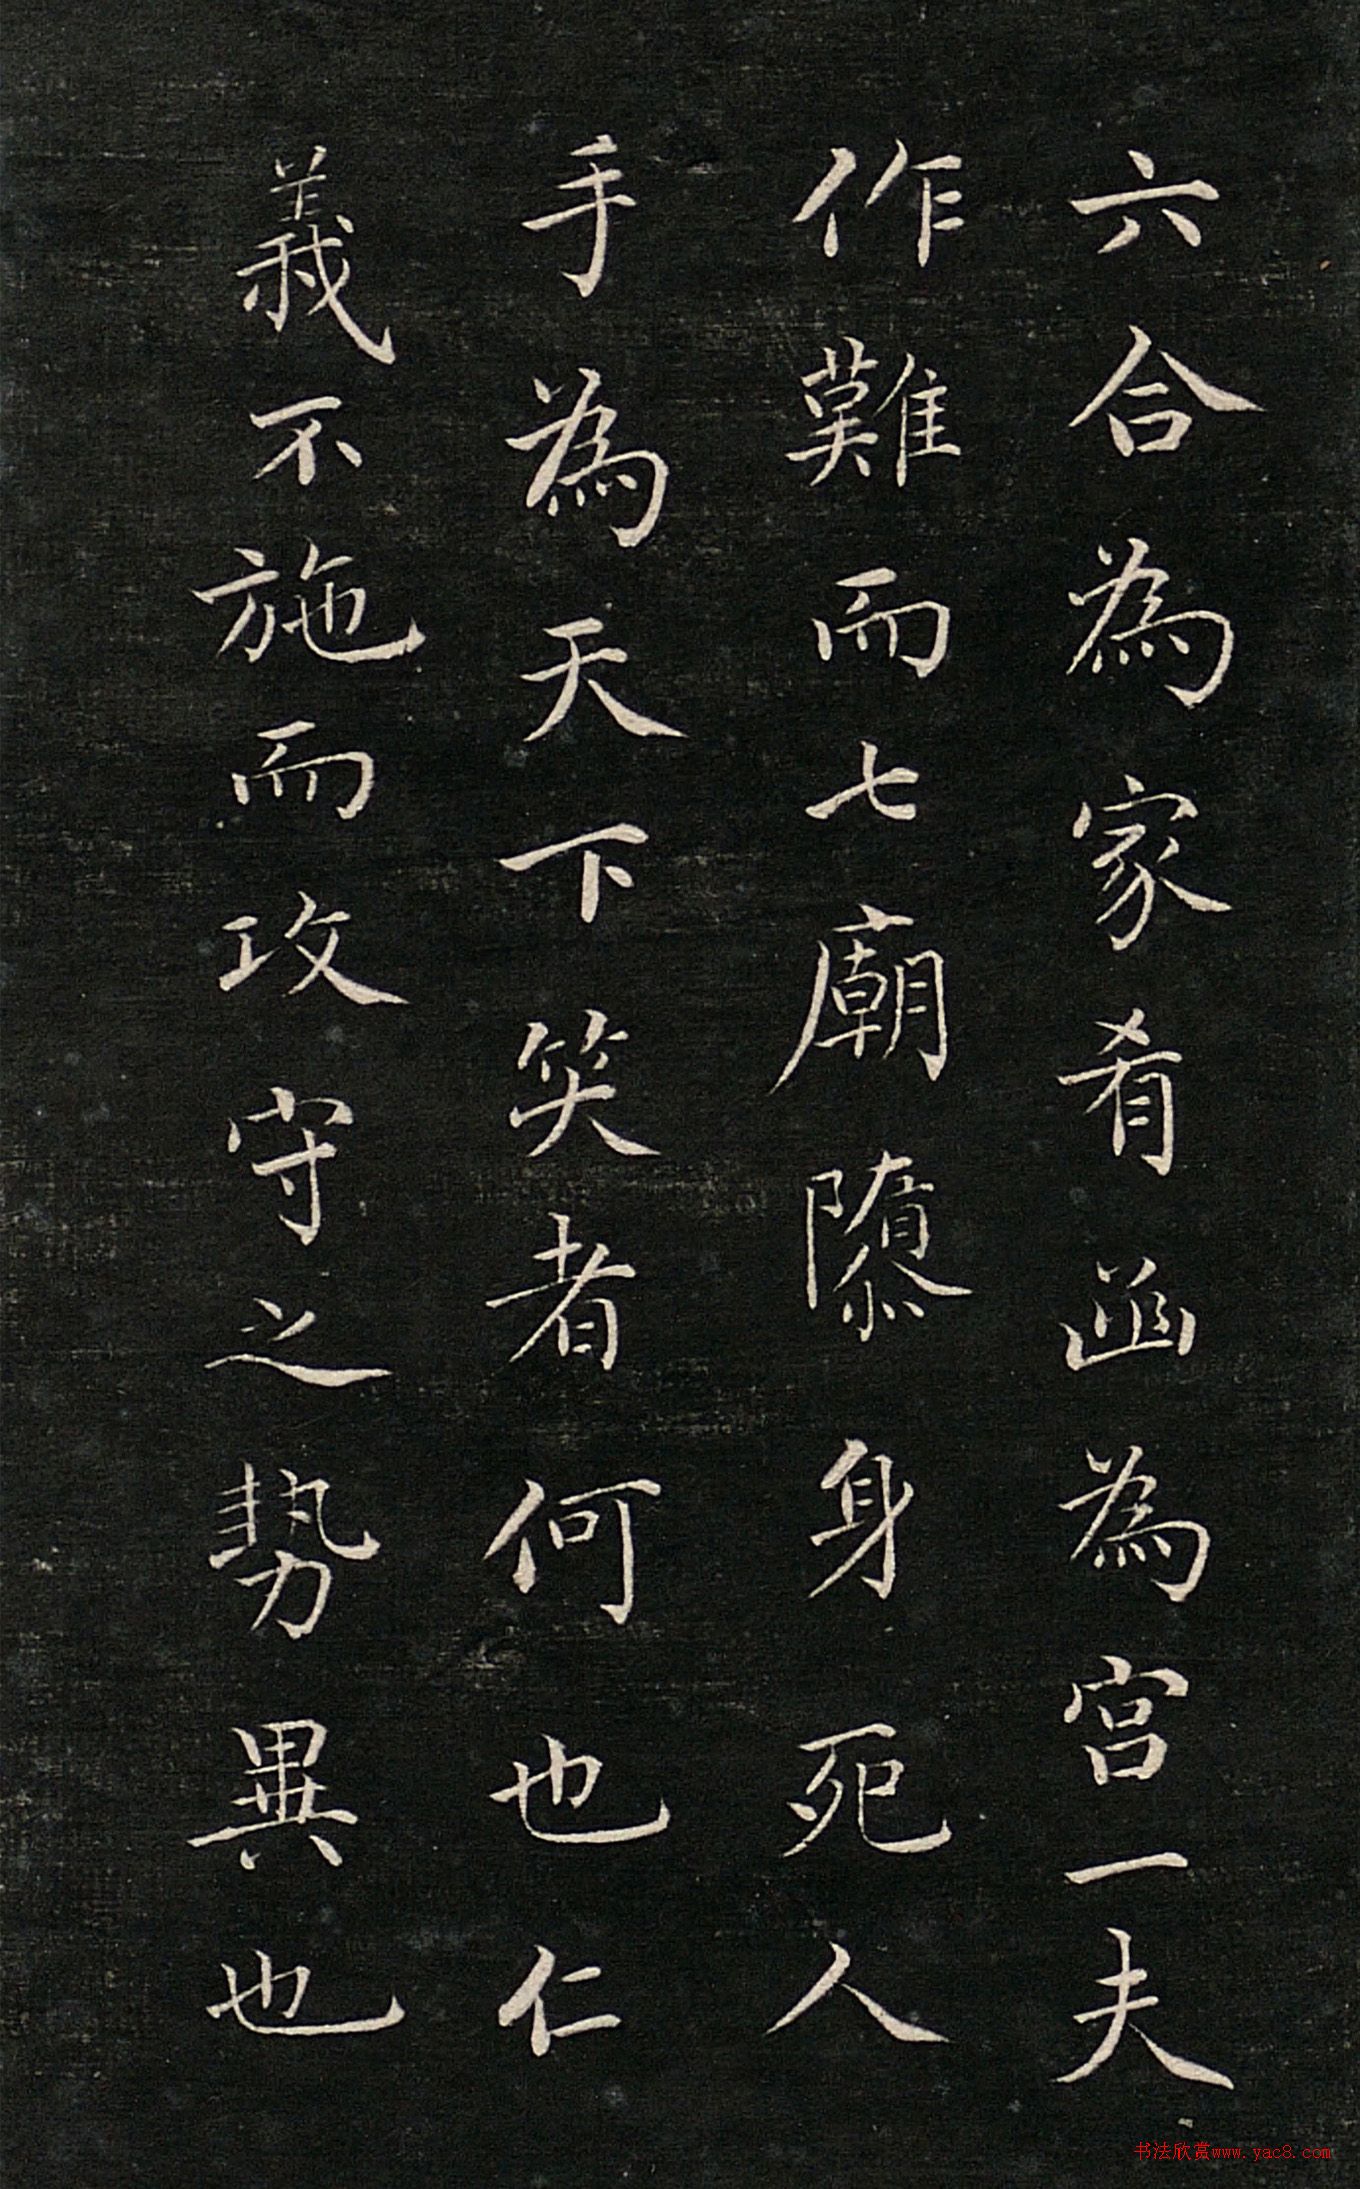 六合為家肴函為宮一夫
作難而七廟隳身死人
手為天下笑者何也仁
義不施而攻守之勢異也
书法欣赏www.yac8.com